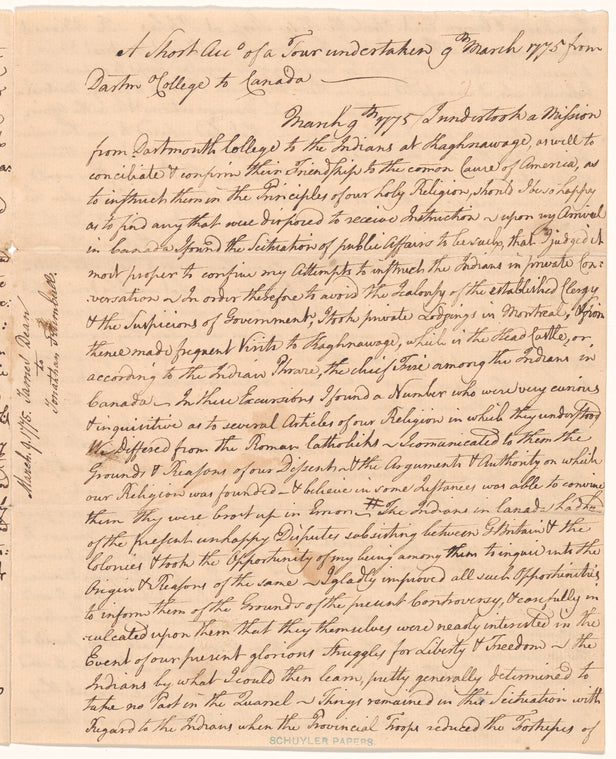 A Short Acco of a Tour undertaken 9th March 1775 from
Dartm College to Canada
March 9th 1775, I undertook a Mission
from Dartmouth College to the Indians at Kaghnawage, as well to
conciliate & confirm their Friendship to the comon Cause of America, as
to instruct them in the Principles of our holy Religion, should I be so happy
as to find any that were disposed to receive Instruction – upon my Arrival
in Canada I found the Scituation of public Affairs to be such, that I judged it
most proper to confine my Attempts to instruct the Indians in private Con:
versation – In order therefore to avoid the Jealousy of the established Clergy
& the Suspicions of Government, I took private Lodgings in Montreal, & from
thence made frequent Visits to Kaghnawage, which is the Head Castle, or,
according to the Indian Phrase, the chief Fire among the Indians in
Canada – In these Excursions I found a Number who were very curious
& inquisitive as to several Articles of our Religion in which they understood
We Differed from the Roman Catholicks – I comunicated to them the
Grounds & Reasons of our Dissent – & the Arguments & Authority on which
our Religion was founded – & believe in some Instances was able to convince
them they were brot up in Error – # The Indians in Canada had
of the present unhappy Disputes subsisting between G Britain & the
Colonies & took the Opportunity of my being among them to enquire into the
Origin & Reasons of the same – I gladly improved all such Opportunities
to inform them of the Grounds of the present Controversy, & carefully in
culcated upon them that they themselves were nearly interested in the
Event of our present glorious Struggles for Liberty & Freedom – the
Indians by what I could then learn, pretty generally determined to
take no Part in the Quarrel – Things remained in this Scituation with
Regard to the Indians when the Provincial Troops reduced the Fortresses of
March 9. 1775. James Dean
to
Jonathan Trumbull.
SCHUYLER PAPERS